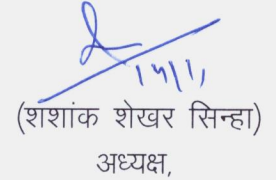 (शशांक शेखर सिन्हा)
अध्यक्ष,